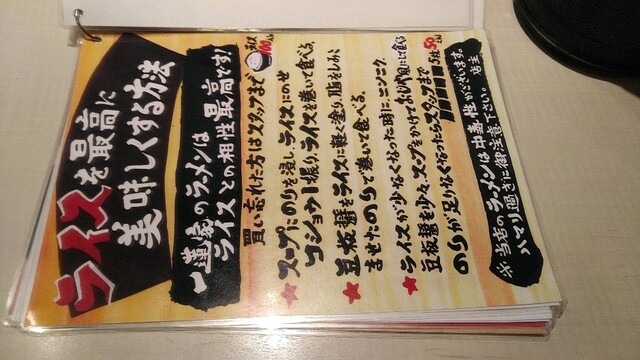 ライスを最高に
美味しくする方法
一蓮歳のラーメンは
ライスとの相性最高です!
買い忘れた方はスタッフまで
ライス 100円
★スープにのりを浸し、ライスにのせ
コショウ一振り、ライスを巻いて食べる。
★豆板醤をライスに軽く塗り、脂をしみ
ませたのりで巻いて食べる。
★ライスが少なくなった時に、ニンニク、
豆板醤を少々、スープをかけてお茶漬風にして食べる
のりが足りなくなったらスタッフまで
5枚50円
※当店のラーメンは中毒性がございます。
ハマり過ぎに御注意下さい。 店主